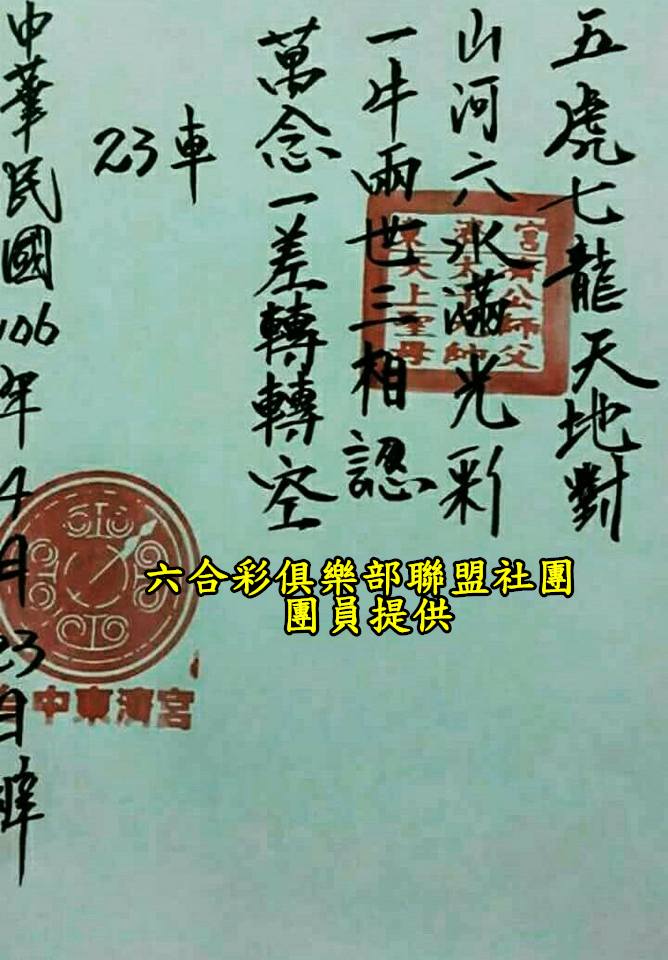 五虎七龍天地對
山河六水滿光彩
一牛兩世三相認
萬念一差轉轉空
23車
中華民國106年4月23日
東濟宮
濟公師父
天上聖母
中東濟宮
六合彩俱樂部聯盟社團
團員提供